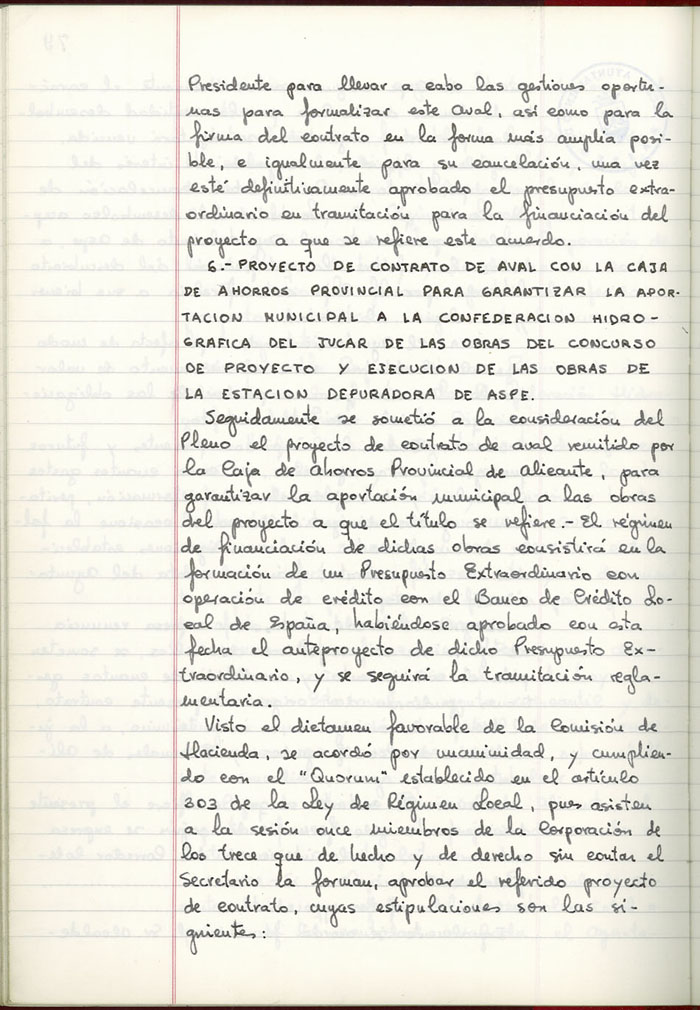 Presidente para llevar a cabo las gestiones oportu-
nas para formalizar este aval, así como para la
firma del contrato en la forma más amplia posi-
ble, e igualmente para su cancelación, una vez
esté definitivamente aprobado el presupuesto extra-
ordinario en tramitación para la financiación del
proyecto a que se refiere este acuerdo.
6.- PROYECTO DE CONTRATO DE AVAL CON LA CAJA
DE AHORROS PROVINCIAL PARA GARANTIZAR LA APOR-
TACION MUNICIPAL A LA CONFEDERACION HIDRO-
GRAFICA DEL JUCAR DE LAS OBRAS DEL CONCURSO
DE PROYECTO Y EJECUCION DE LAS OBRAS DE
LA ESTACION DEPURADORA DE ASPE.
Seguidamente se sometió a la consideración del
Pleno el proyecto de contrato de aval remitido por
la Caja de Ahorros Provincial de Alicante, para
garantizar la aportación municipal a las obras
del proyecto a que el título se refiere.- El régimen
de financiación de dichas obras consistirá en la
formación de un Presupuesto Extraordinario con
operación de crédito con el Banco de Crédito Lo-
cal de España, habiéndose aprobado con esta
fecha el anteproyecto de dicho Presupuesto Ex-
traordinario, y se seguirá la tramitación regla-
mentaria.
Visto el dictamen favorable de la Comisión de
Hacienda, se acordó por unanimidad, y cumplien-
do con el "Quorum" establecido en el artículo
303 de la Ley de Régimen Local, pues asisten
a la sesión once miembros de la Corporación de
los trece que de hecho y de derecho sin contar el
Secretario la forman, aprobar el referido proyecto
de contrato, cuyas estipulaciones son las si-
guientes: